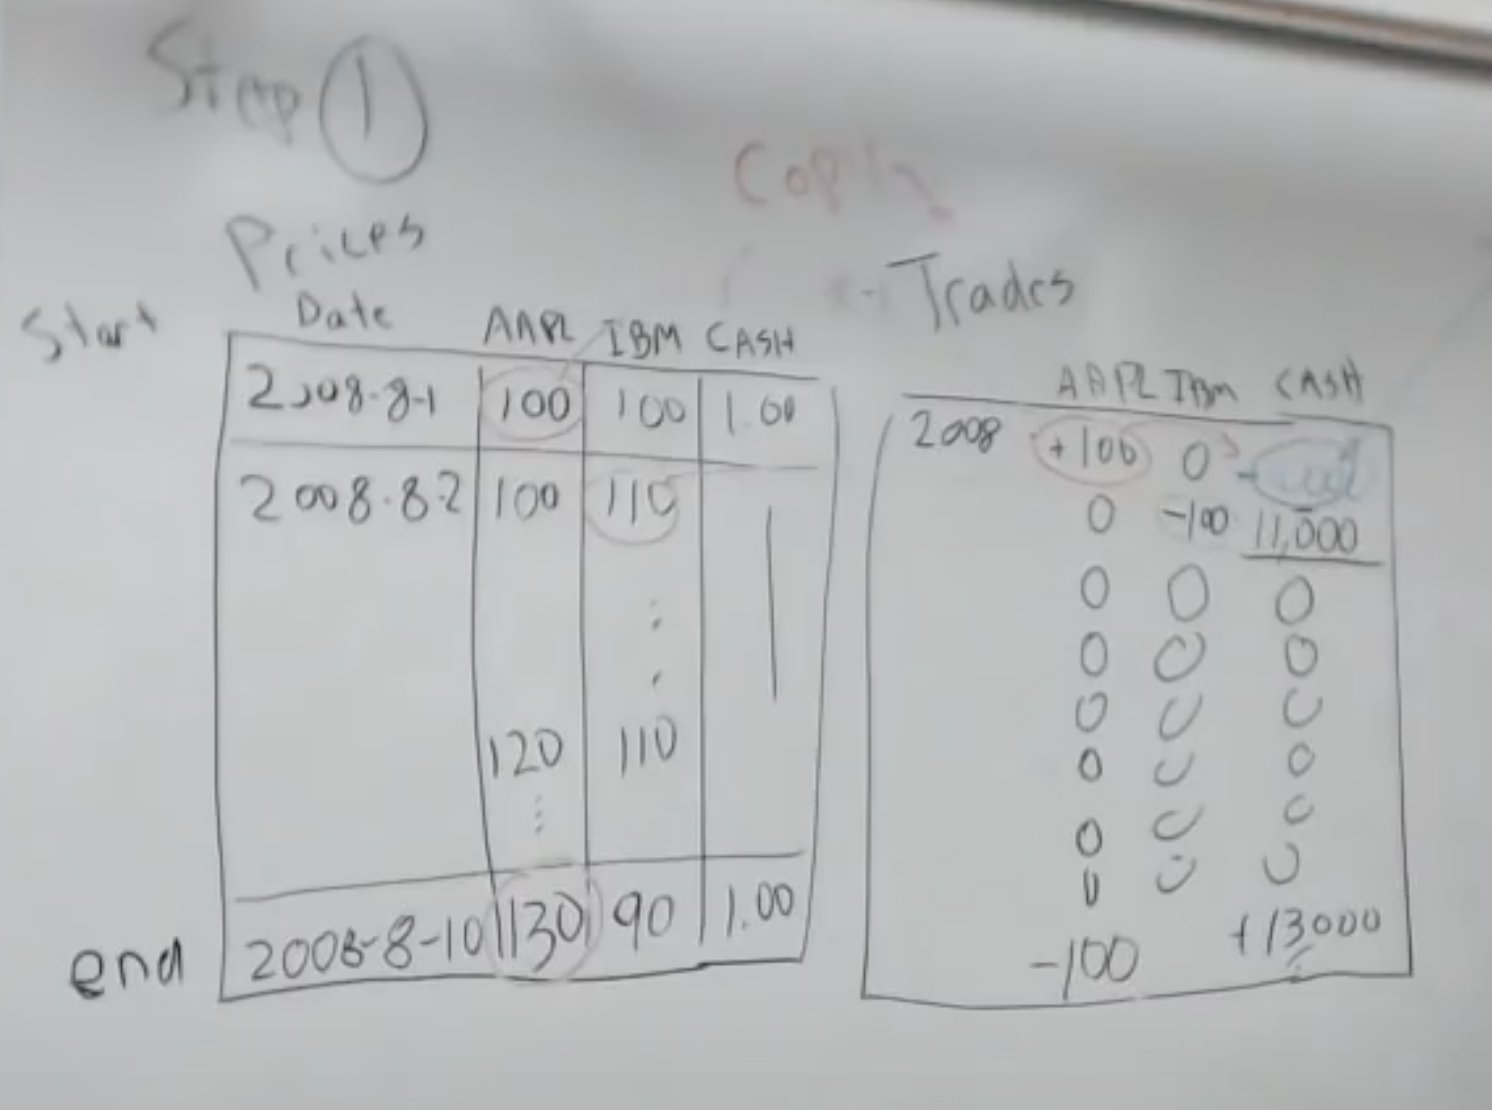 Step 1
Copy
Prices
Trades
Start
Date AAPL IBM CASH
2008-8-1 100 100 1.00
2008.8.2 100 110
120 110
end
2008-8-10 130 90 1.00
AAPL IBM CASH
2008 +100 0
0 -100 11,000
0 0 0
0 0 0
0 0 0
0 0 0
0 0 0
0 0 0
-100 +13000